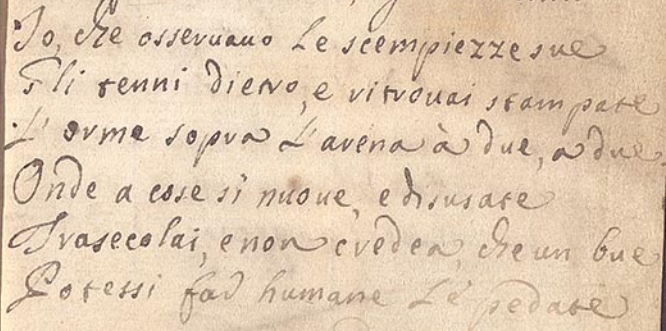 Io, che osseruauo le scempiezze sue
Gli tenni dietro, e ritrouai stampate
L'orme sopra L'arena à due, a due
Onde a cose sì nuoue, e disusate
Trasecolai, e non credea, che un bue
Potessi far humane Le pedate